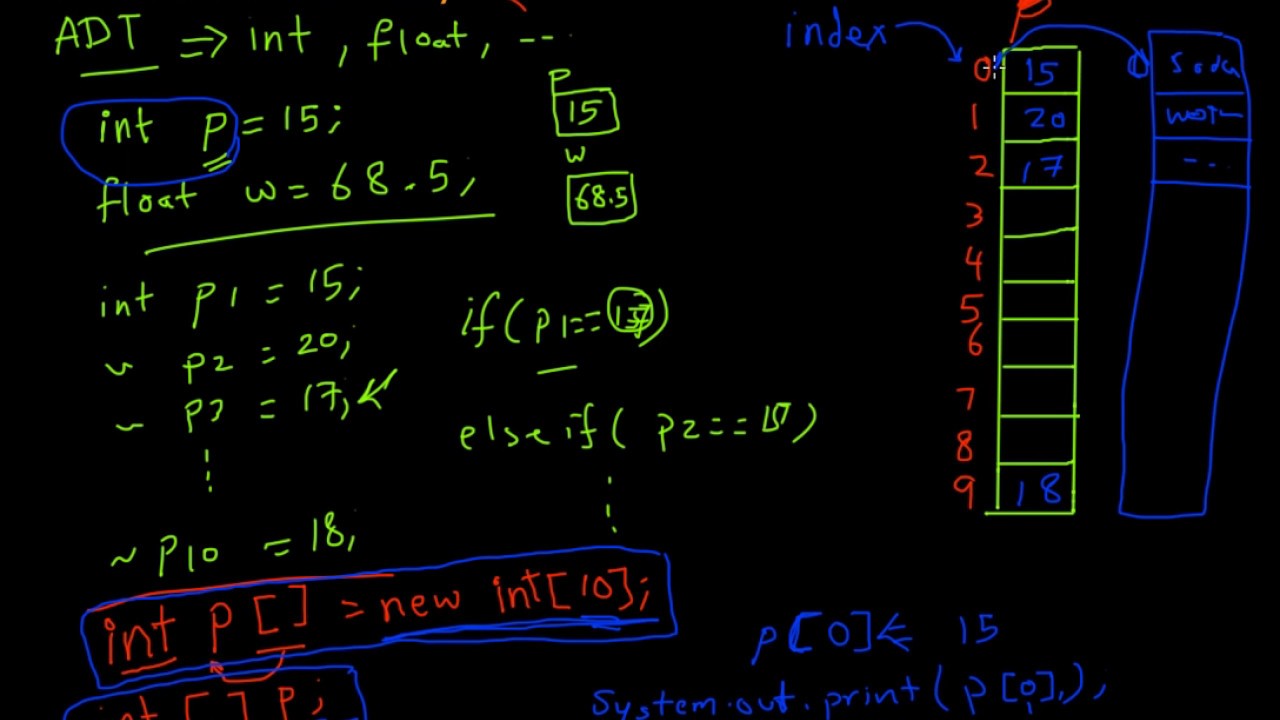 ADT ⇒ int, float, --
int p = 15;
float w = 68.5;
p
15
w
68.5
int p1 = 15;
~ p2 = 20;
~ p3 = 17;
~ p10 = 18,
if( p1==
else if( p2==
int p [ ] = new int[10];
int [ ] p;
index
p
0 15
1 20
2 17
3
4
5
6
7
8
9 18
Soda
---
p[0] ← 15
System.out.print( p[0],),